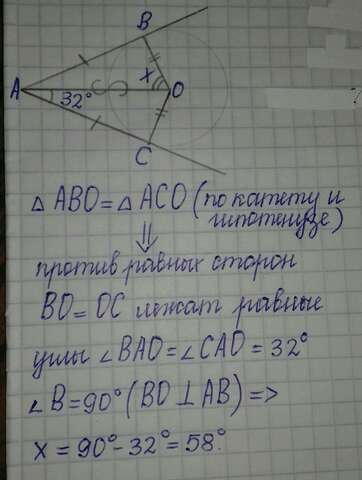 B
A 32° x O
C
△ ABO = △ ACO (по катету и
гипотенузе)
⇓
против равных сторон
BO = OC лежат равные
углы ∠BAO = ∠CAO = 32°
∠B = 90° (BO ⊥ AB) =>
x = 90° - 32° = 58°.